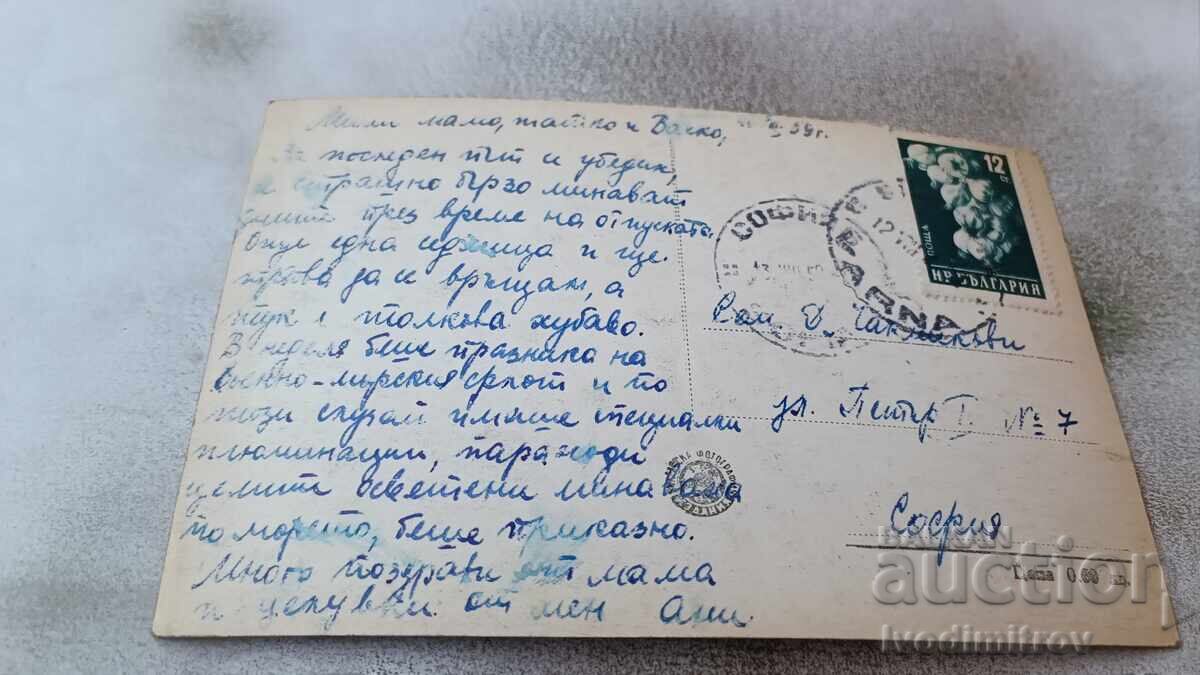 Мили мамо, татко и Васко,
59г.
За последен път и убедих,
че страшно бързо минават
дните през време на отпуската.
Още една седмица и ще
трябва да се връщам, а
тук е толкова хубаво.
В неделя беше празника на
военно-морския флот и по
този случай имаше специални
илюминации, параходи
целите осветени минаваха
по морето, беше приказно.
Много поздрави от мама
и целувки от мен Ани.
12
ПОЩА
НР БЪЛГАРИЯ
СОФИЯ
VARNA
12 VIII
Сем. Д.
ул. Петър I № 7
София
Цена 0.60 лв.
auction
Ivodimitrov